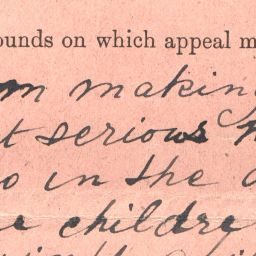 ounds on which appeal m
m making
t serious
o in the
e childre